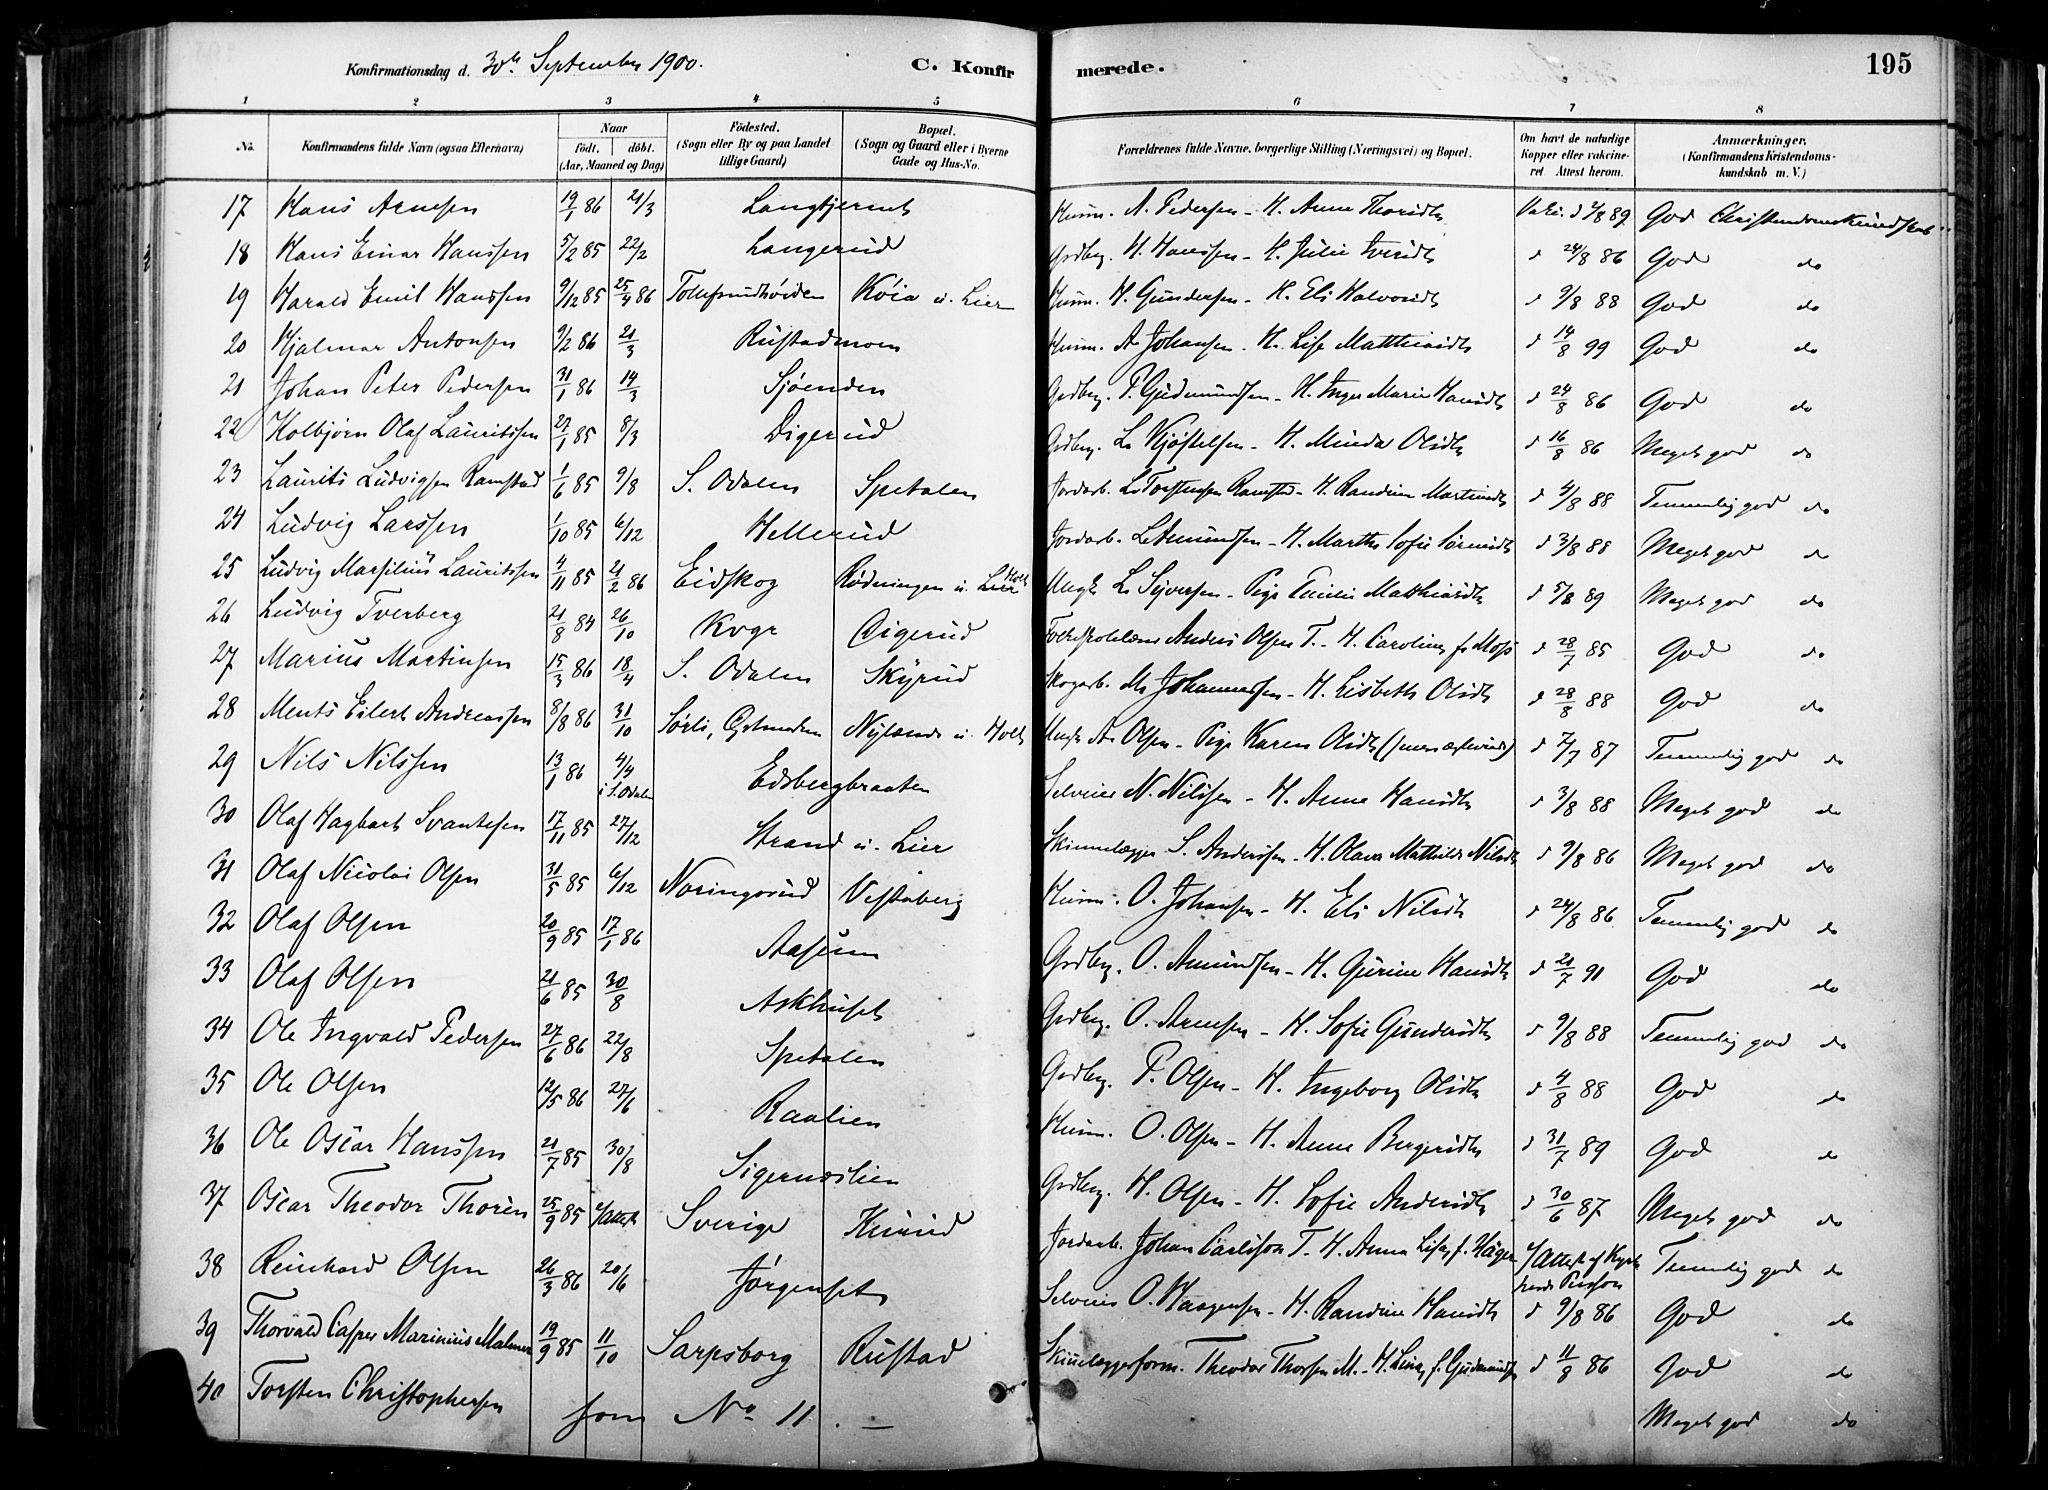 Konfirmationsdag d. 30te September 1900. C. Konfirmerede. 195
1 2 3 4 5 6 7 8
No. Konfirmandens fulde Navn (ogsaa Efternavn) Naar födt. döbt. (Aar, Maaned og Dag) Födested. (Sogn eller By og paa Landet tillige Gaard) Bopæl. (Sogn og Gaard eller i Byerne Gade og Hus-No. Forældrenes fulde Navne, borgerlige Stilling (Næringsvei) og Bopæl. Om havt de naturlige Kopper eller vakcineret Attest herom. Anmærkninger. (Konfirmandens Kristendomskundskab m. V.)
17 Hans Arnesen 19/1 86 21/3 Langtjernet Husm. A. Pedersen - H. Anne Thorsdtr Vakc. d 2/8 89 God Christendomskundskab
18 Hans Einar Hanssen 5/2 85 22/2 Langerud Grdbrg. H. Hanssen - H. Julie Iversdtr d 24/8 86 God do
19 Harald Emil Hanssen 9/12 85 25/4 86 Kóia u. Lier Husm. H. Gundersen - H. Eli Halvorsdtr d 9/8 88 God do
20 Hjalmar Antonsen 9/2 86 21/3 Rustadmoen Husm. A Johansen - H. Lise Matthiasdtr d 14/8 99 God do
21 Johan Peter Pedersen 31/1 86 14/3 Sjøenden Grdbrg. P. Gudmundsen - H. Inger Marie Hansdtr d 24/8 86 God do
22 Kolbjørn Olaf Lauritssen 27/1 85 8/3 Digerud Grdbrg. L. Kjøstelsen - H. Minda Olsdtr d 16/8 86 Meget god do
23 Laurits Ludvigsen Ramstad 1/6 85 9/8 S. Odalen Spetalen Jordarb. L. Torstensen Ramstad - H. Randine Martinsdtr d 4/8 88 Temmelig god do
24 Ludvig Larssen 1/10 85 6/12 Hellerud Jordarb. L. Amundsen - H. Marthe Sofie d 3/8 88 Meget god do
25 Ludvig Marsilius Lauritssen 4/11 85 21/2 86 Eidskog Rødningen u. Holt Ungk. L. Syversen - Pige Emilie Matthiasdtr d 5/8 89 Meget god do
26 Ludvig Tverberg 21/8 84 26/10 Kvgr Digerud Folkeskolelærer Anders Olsen T. - H. Caroline f. Moss d 28/7 85 God do
27 Marius Martinsen 15/3 86 18/4 S. Odalen Skyrud Skogarb. M. Johannessen - H. Lisbeth Olsdtr d 28/8 88 God do
28 Ments Eilert Andreassen 8/8 86 31/10 Sørli, Nyland u. Holt Ungk. A. Olsen - Pige Karen Olsdtr d 7/7 87 Temmelig god do
29 Nils Nilssen 13/1 86 4/4 i S. Odalen Edsbergbraaten Selveier N. Nilssen - H. Anne Hansdtr d 3/8 88 Meget god do
30 Olaf Hagbart Svantesen 17/11 85 27/12 Strand u. Lier Skinnelægger S. Andersen - H. Olava Mathilde Nilsdtr d 9/8 86 Meget god do
31 Olaf Nicolai Olsen 31/5 85 6/12 Noringsrud Vestaberg Husm. O. Johansen - H. Eli Nilsdtr d 24/8 86 Temmelig god do
32 Olaf Olsen 20/9 85 17/1 86 Aasum Grdbrg. O. Amundsen - H. Gurine Hansdtr d 21/7 91 God do
33 Olaf Olsen 21/6 85 30/8 Askhuset Grdbrg. O. Arnesen - H. Sofie Gundersdtr d 9/8 88 Temmelig god do
34 Ole Ingvald Pedersen 27/6 86 22/8 Spetalen Grdbrg. P. Olsen - H. Ingeborg Olsdtr d 4/8 88 God do
35 Ole Olsen 12/5 86 27/6 Raalien Husm. O. Olsen - H. Anne Bergersdtr d 31/7 89 God do
36 Ole Oscar Hanssen 21/7 85 30/8 Sigernæslien Grdbrg. H. Olsen - H. Sofie Andersdtr d 30/6 87 Meget god do
37 Oscar Theodor Thorén 25/9 85 e/Attest Sverige Jordarb. Johan Carlsson T. - H. Anna Lisa f. Häger e/Attest af Persson Temmelig god do
38 Reinhard Olsen 26/3 86 20/6 Jørgenset Selveier O. Haagensen - H. Randine Hansdtr d 9/8 86 God do
39 Thorvald Casper Marinius Malmer 19/9 85 11/10 Sarpsborg Rustad Skinnelæggerform. Theodor Thorsen M. - H. Lina f. Gudmundsen d 11/8 86 God do
40 Torsten Christophersen som No 11. — Meget god do